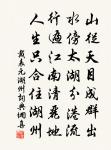 山從天目成群出
水傍太湖分港流
行遍江南清麗地
人生只合住湖州
戴表元湖州詞典佩喜